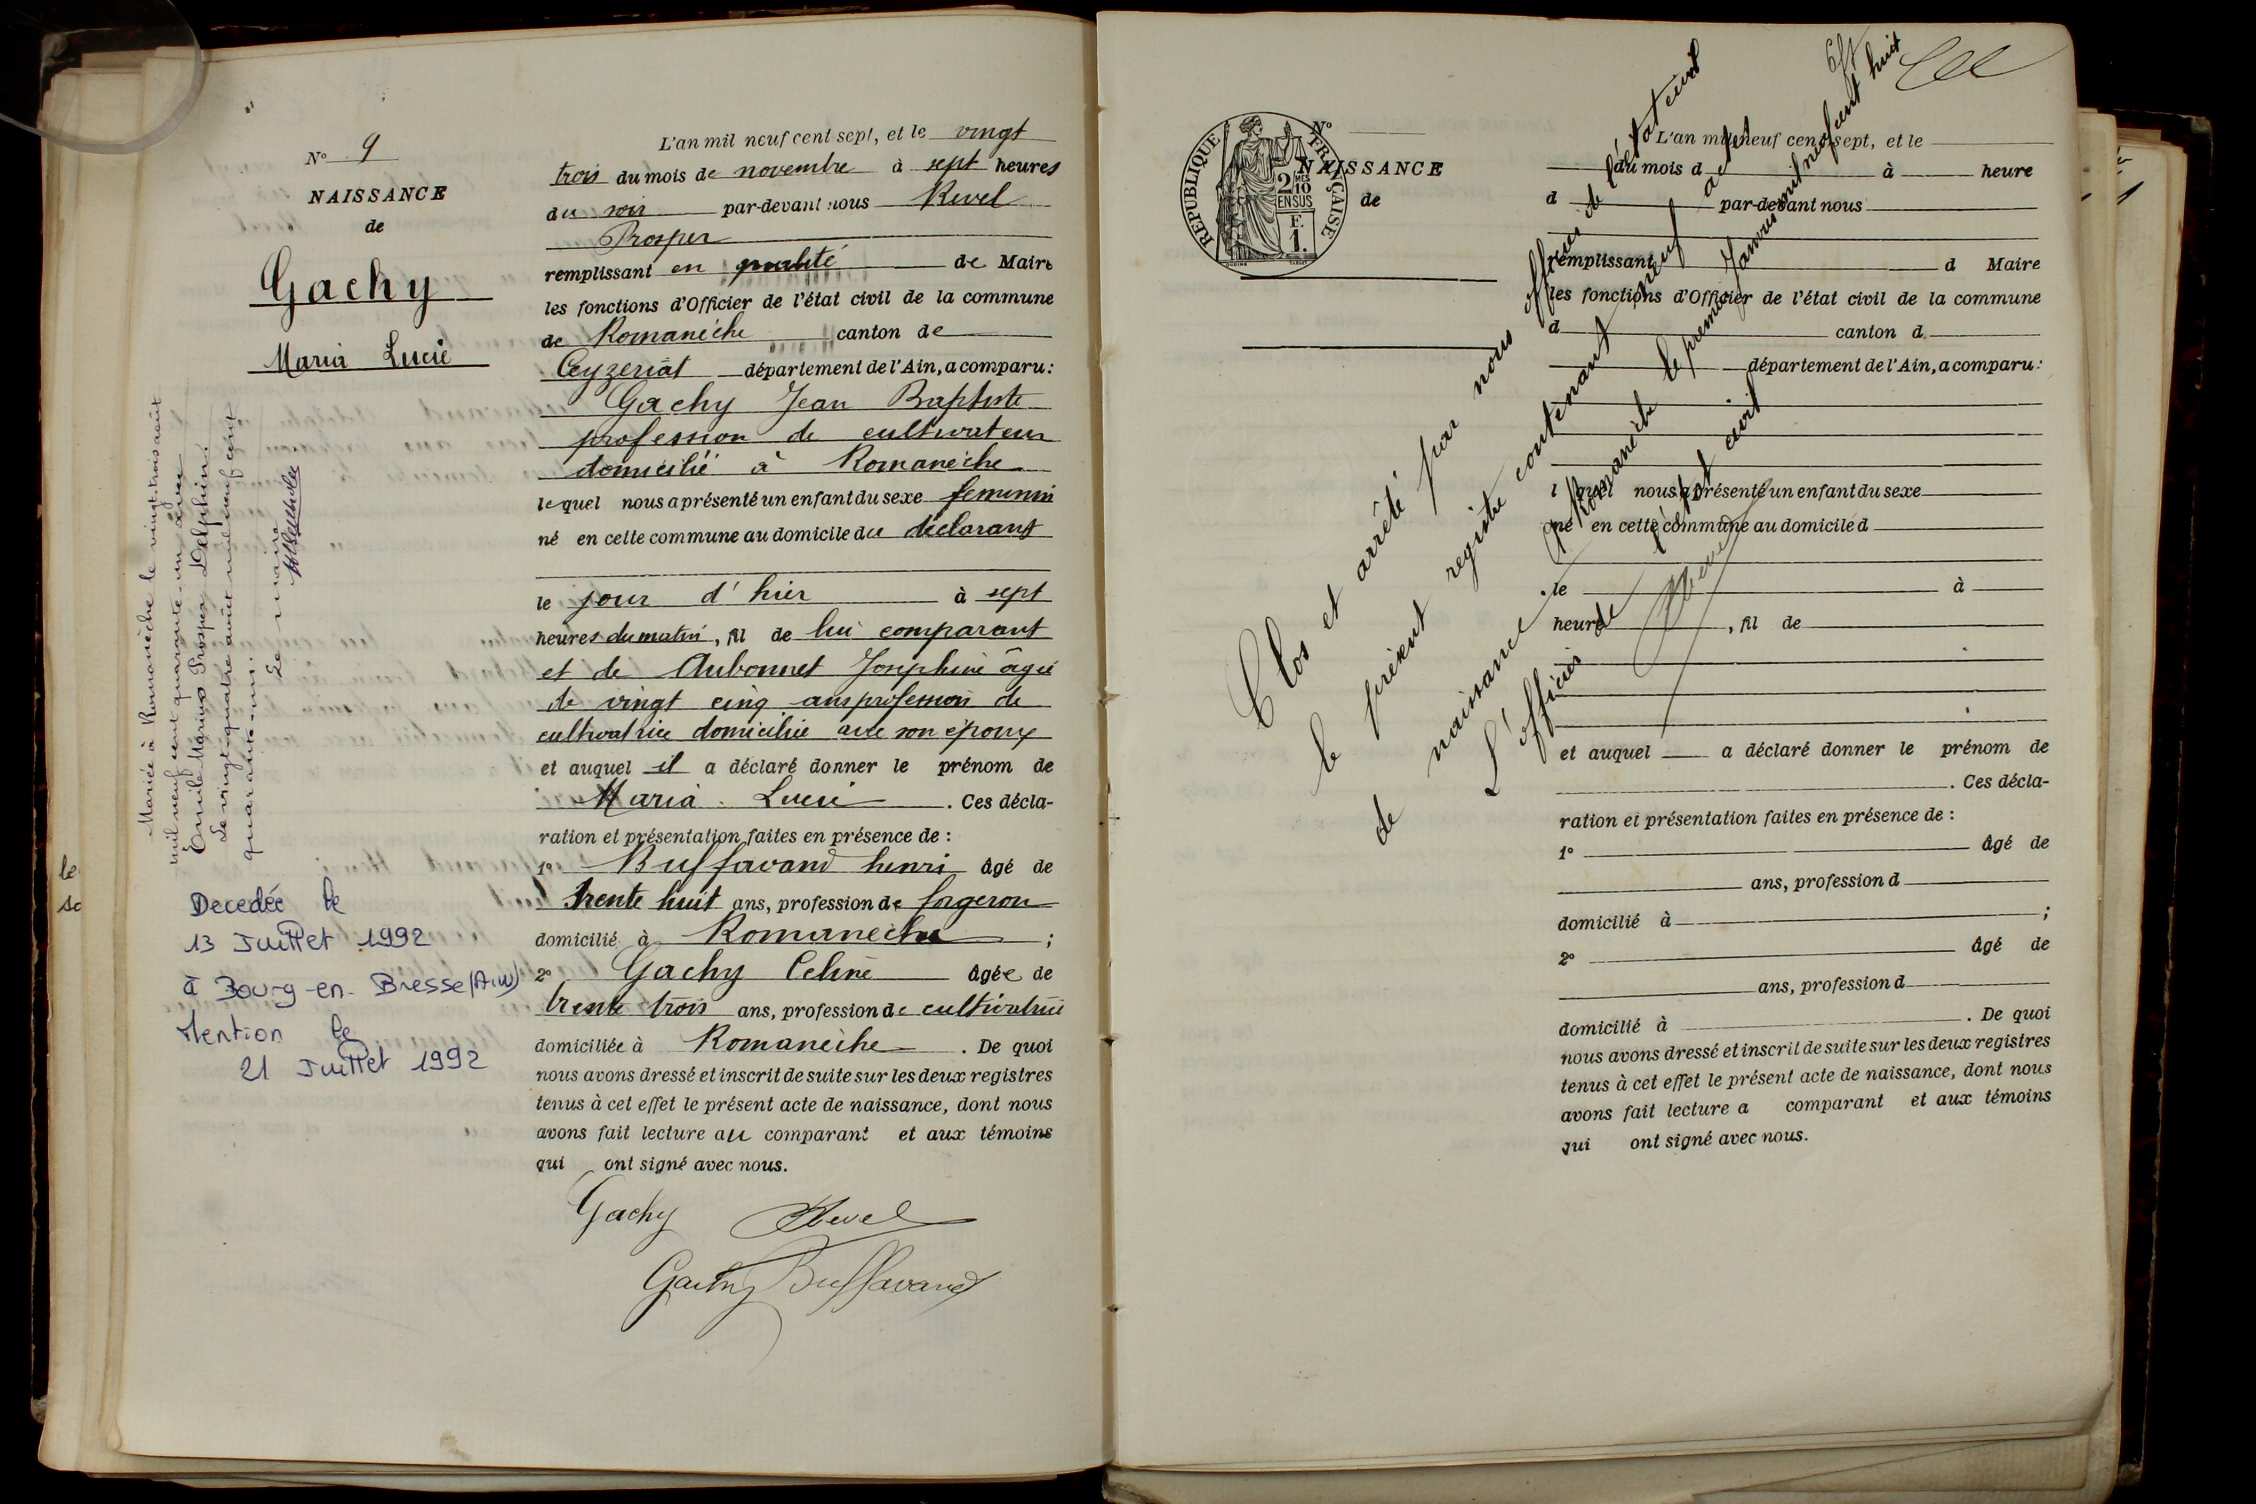 N° 9
NAISSANCE
de
Gachy
Maria Lucie
Mariée à Romanèche le vingt-trois août
mil neuf cent quarante-un avec
Émile Marius Prosper Delphin.
Le vingt quatre août mil neuf cent
quarante-un.
Le maire
Decedée le
13 Juillet 1992
à Bourg-en-Bresse (Ain)
Mention le
21 Juillet 1992
L'an mil neuf cent sept, et le vingt
trois du mois de novembre à sept heures
du soir par-devant nous Revel
Prosper
remplissant en qualité de Maire
les fonctions d'Officier de l'état civil de la commune
de Romanèche canton de
Ceyzeriat département de l'Ain, a comparu:
Gachy Jean Baptiste
profession de cultivateur
domicilié à Romanèche
lequel nous a présenté un enfant du sexe feminin
né en cette commune au domicile du déclarant
le jour d'hier à sept
heures du matin, fil de lui comparant
et de Aubonnet Josephine âgée
de vingt cinq ans profession de
cultivatrice domiciliée avec son époux
et auquel il a déclaré donner le prénom de
Maria Lucie. Ces décla-
ration et présentation faites en présence de :
1° Buffavand henri âgé de
trente huit ans, profession de forgeron
domicilié à Romanèche ;
2° Gachy Celine âgée de
trente trois ans, profession de cultivatrice
domiciliée à Romanèche. De quoi
nous avons dressé et inscrit de suite sur les deux registres
tenus à cet effet le présent acte de naissance, dont nous
avons fait lecture au comparant et aux témoins
qui ont signé avec nous.
Gachy Revel
Gachy Buffavand
le
so
RÉPUBLIQUE FRANÇAISE
2 MES
10
EN SUS
F.
1.
N°
NAISSANCE
de
L'an mil neuf cent sept, et le
du mois d à heure
d par-devant nous
remplissant d Maire
les fonctions d'Officier de l'état civil de la commune
d canton d
département de l'Ain, a comparu:
l quel nous a présenté un enfant du sexe
né en cette commune au domicile d
le à
heure , fil de
et auquel a déclaré donner le prénom de
. Ces décla-
ration et présentation faites en présence de :
1° âgé de
ans, profession d
domicilié à ;
2° âgé de
ans, profession d
domicilié à . De quoi
nous avons dressé et inscrit de suite sur les deux registres
tenus à cet effet le présent acte de naissance, dont nous
avons fait lecture a comparant et aux témoins
qui ont signé avec nous.
Clos et arrêté par nous officier de l'état civil
le présent registre contenant neuf actes
de naissance Romanèche le premier Janvier mil neuf cent huit
L'officier de l'état civil
Revel